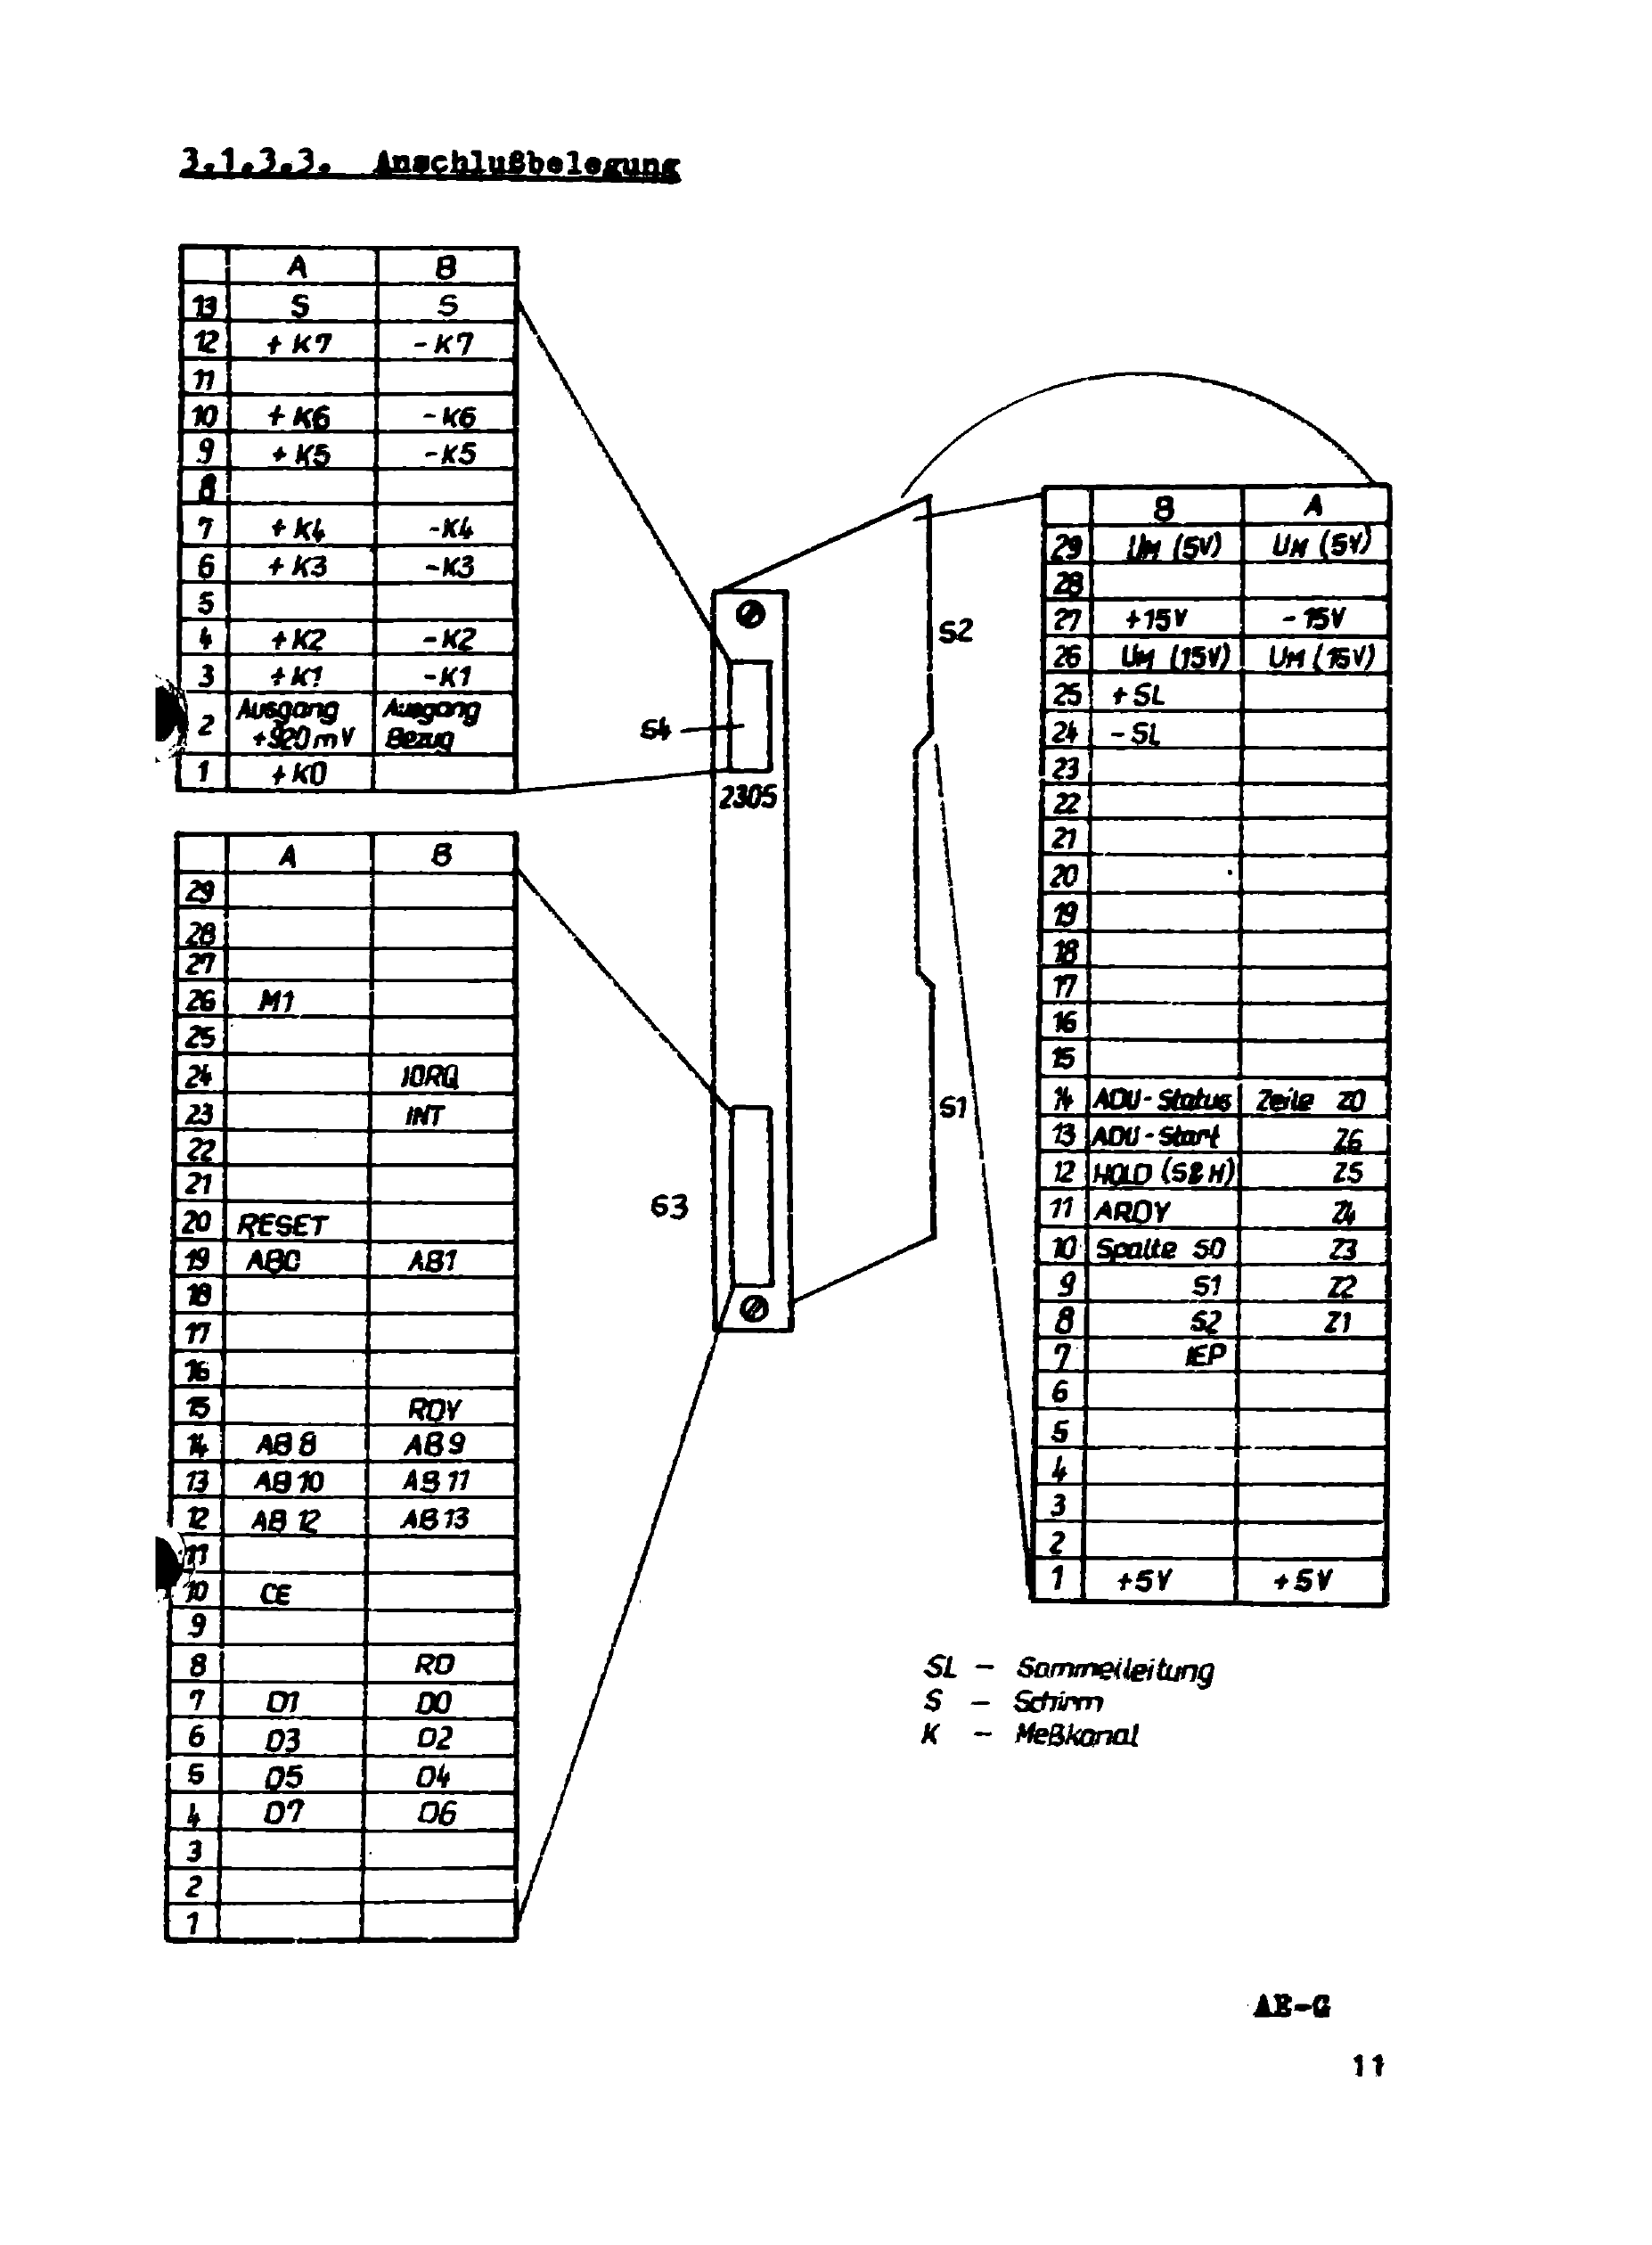 3.1.3.3. Anschlußbelegung
A B
13 S S
12 +K7 -K7
11
10 +K6 -K6
9 +K5 -K5
8
7 +K4 -K4
6 +K3 -K3
5
4 +K2 -K2
3 +K1 -K1
2 Ausgang Ausgang
+920mV Bezug
1 +K0
A B
29
28
27
26 M1
25
24 IORQ
23 INT
22
21
20 RESET
19 AB0 AB1
18
17
16
15 RDY
14 AB8 AB9
13 AB10 AB11
12 AB12 AB13
11
10 CE
9
8 RD
7 D1 D0
6 D3 D2
5 D5 D4
4 D7 D6
3
2
1
S4
2305
S3
S2
S1
B A
29 UM (5V) UM (5V)
28
27 +15V -15V
26 UM (15V) UM (15V)
25 +SL
24 -SL
23
22
21
20
19
18
17
16
15
14 ADU-Status Zeile Z0
13 ADU-Start Z6
12 HOLD (S&H) Z5
11 ARDY Z4
10 Spalte S0 Z3
9 S1 Z2
8 S2 Z1
7 IEP
6
5
4
3
2
1 +5V +5V
SL - Sammelleitung
S - Schirm
K - Meßkanal
AE-G
11